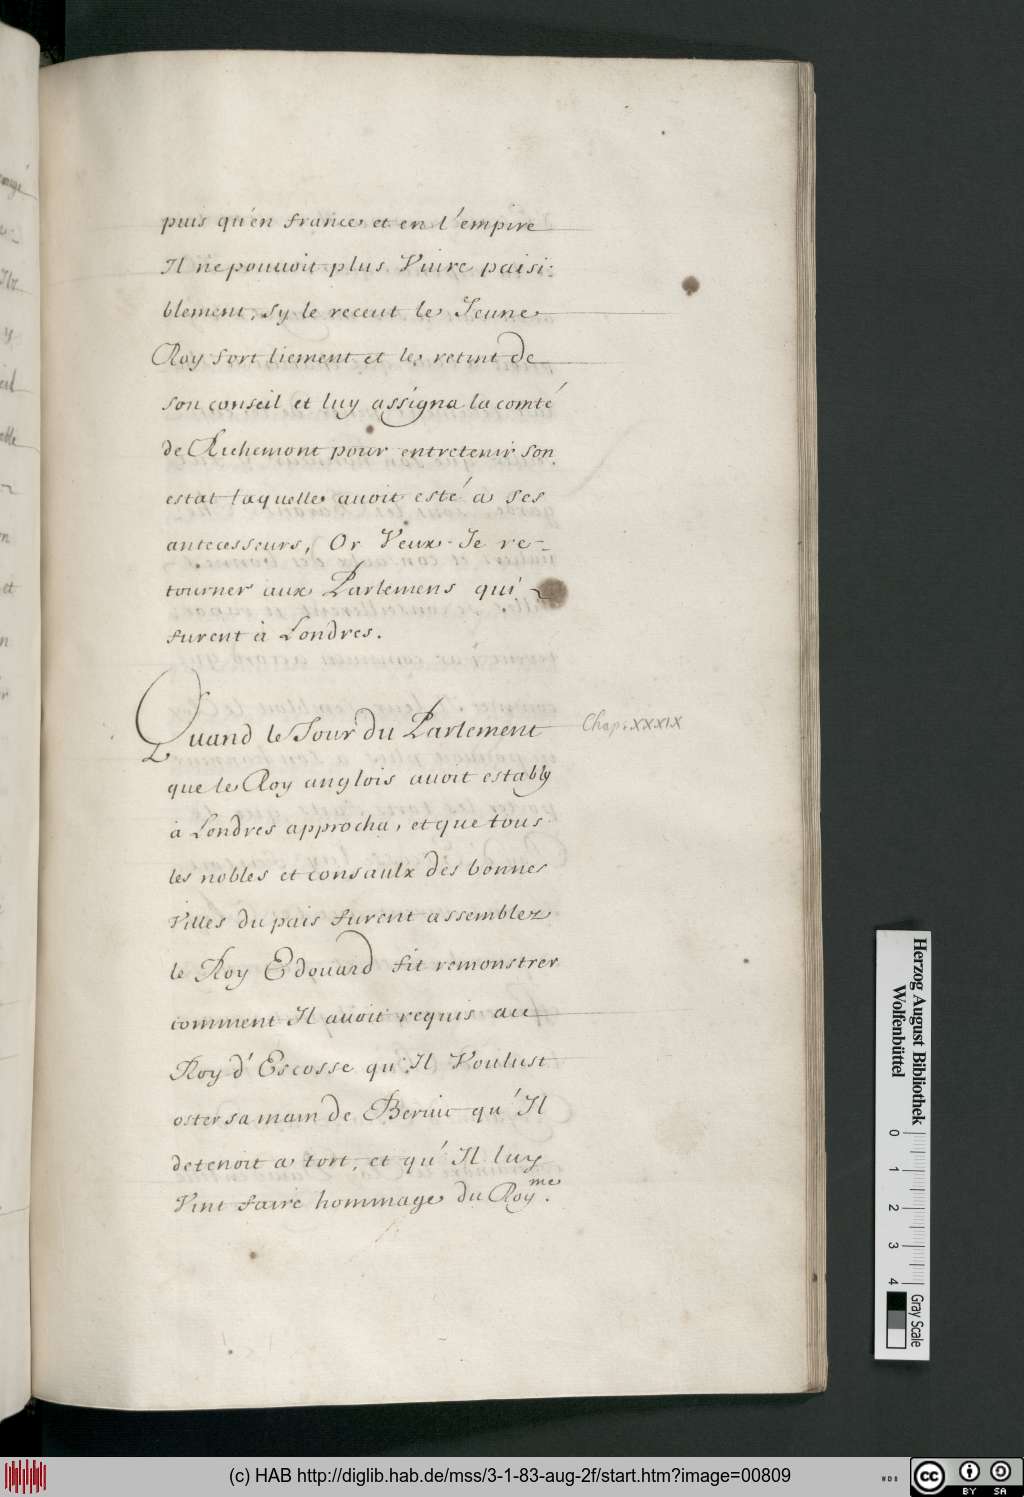 puis qu'en france et en l'empire
Il ne pouuoit plus Viure paisi-
blement, sy le receut le Jeune
Roy fort liement et le retint de
son conseil et luy assigna la comté
de Richemont pour entretenir son
estat laquelle auoit esté a ses
antecesseurs, Or Veux Je re-
tourner aux Parlemens qui
furent à Londres.
Quand le Jour du Parlement
Chap. XXXIX
que le Roy anglois auoit estably
à Londres approcha, et que tous
les nobles et consaulx des bonnes
Villes du pais furent assemblez
le Roy Edouard fit remonstrer
comment Il auoit requis au
Roy d'Escosse qu'Il Voulust
oster sa main de Beruic qu'Il
detenoit a tort, et qu'Il luy
Vint faire hommage du Roy.me
Herzog August Bibliothek
Wolfenbüttel
0 1 2 3 4
Gray Scale
(c) HAB http://diglib.hab.de/mss/3-1-83-aug-2f/start.htm?image=00809
WDB
CC BY SA